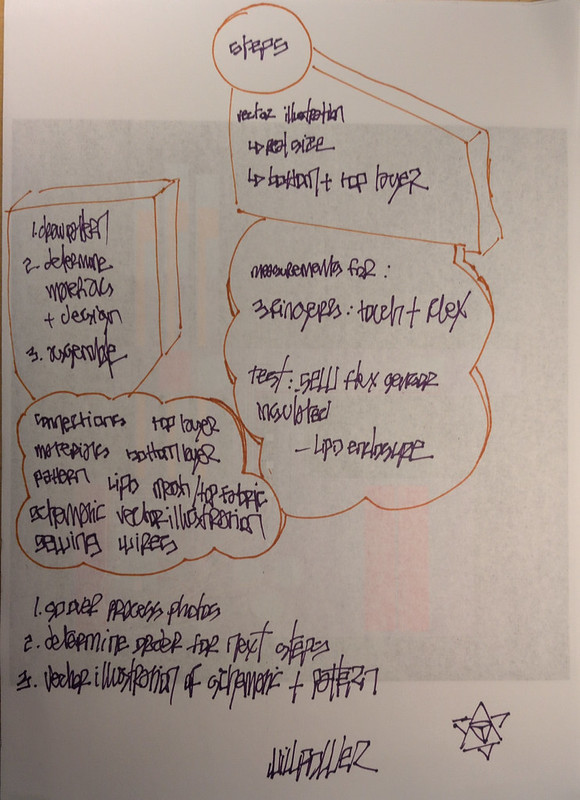 steps
vector illustration
↳ real size
↳ bottom + top layer
1. draw pattern
2. determine
materials
+ design
3. assemble
measurements for:
3 fingers: touch + flex
test: sew flex sensor
insulated
- Lipo enclosure
connections top layer
materials bottom layer
pattern Lipo mesh/top fabric
schematic vector illustration
sewing wires
1. go over process photos
2. determine order for next steps
3. vector illustration of schematic + pattern